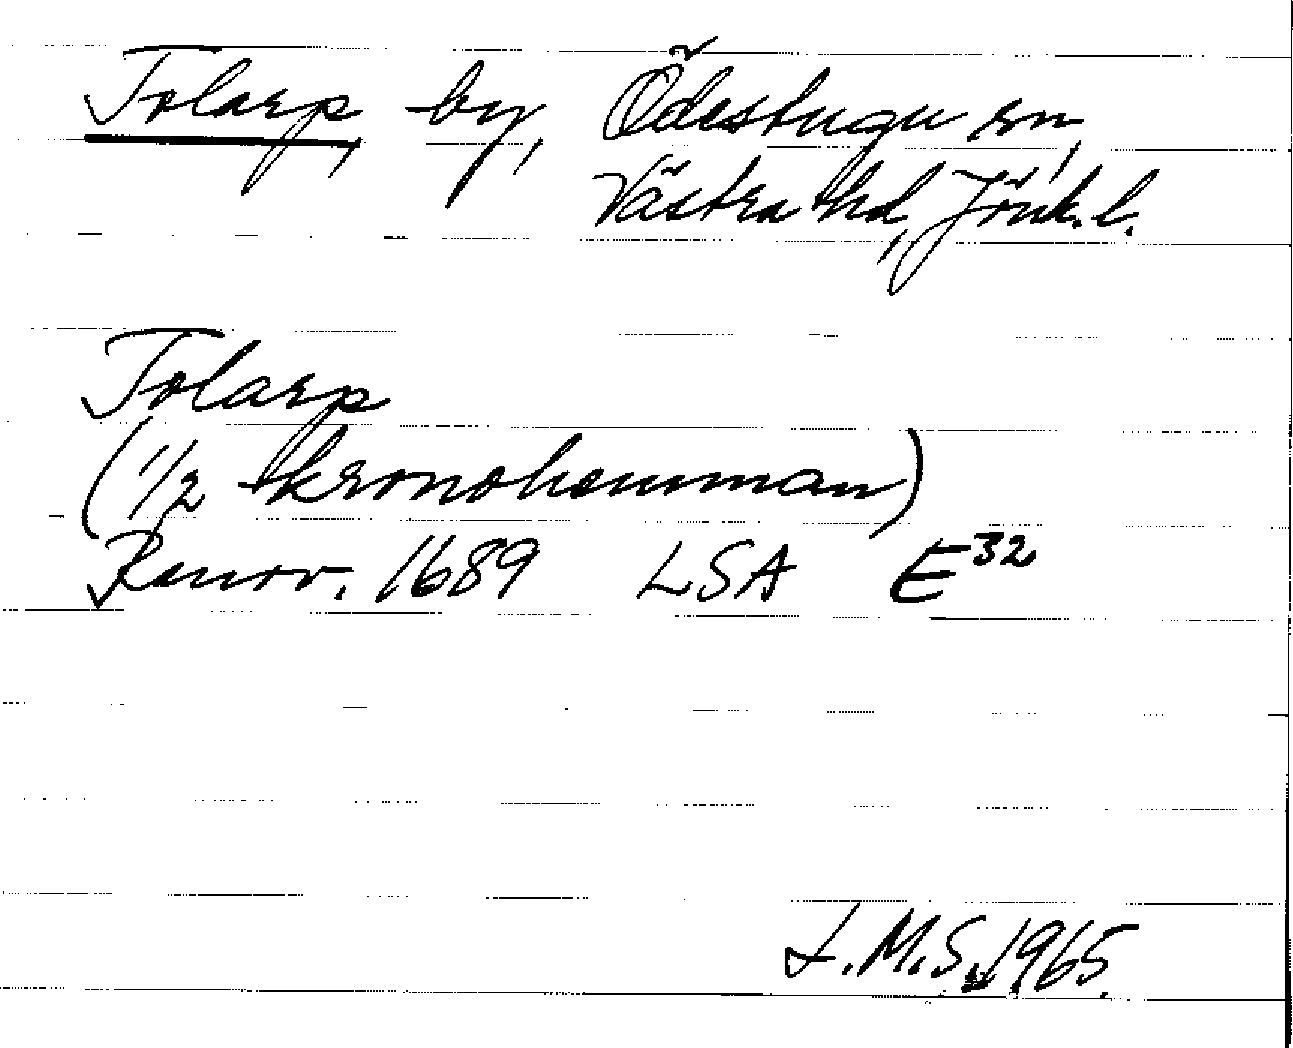 Tolarp, by, Ödestugu sn,
Västra hd, Jönk. l.
Tolarp
(1/2 kronohemman)
Renov. 1689 LSA E32
I.M.S. 1965.